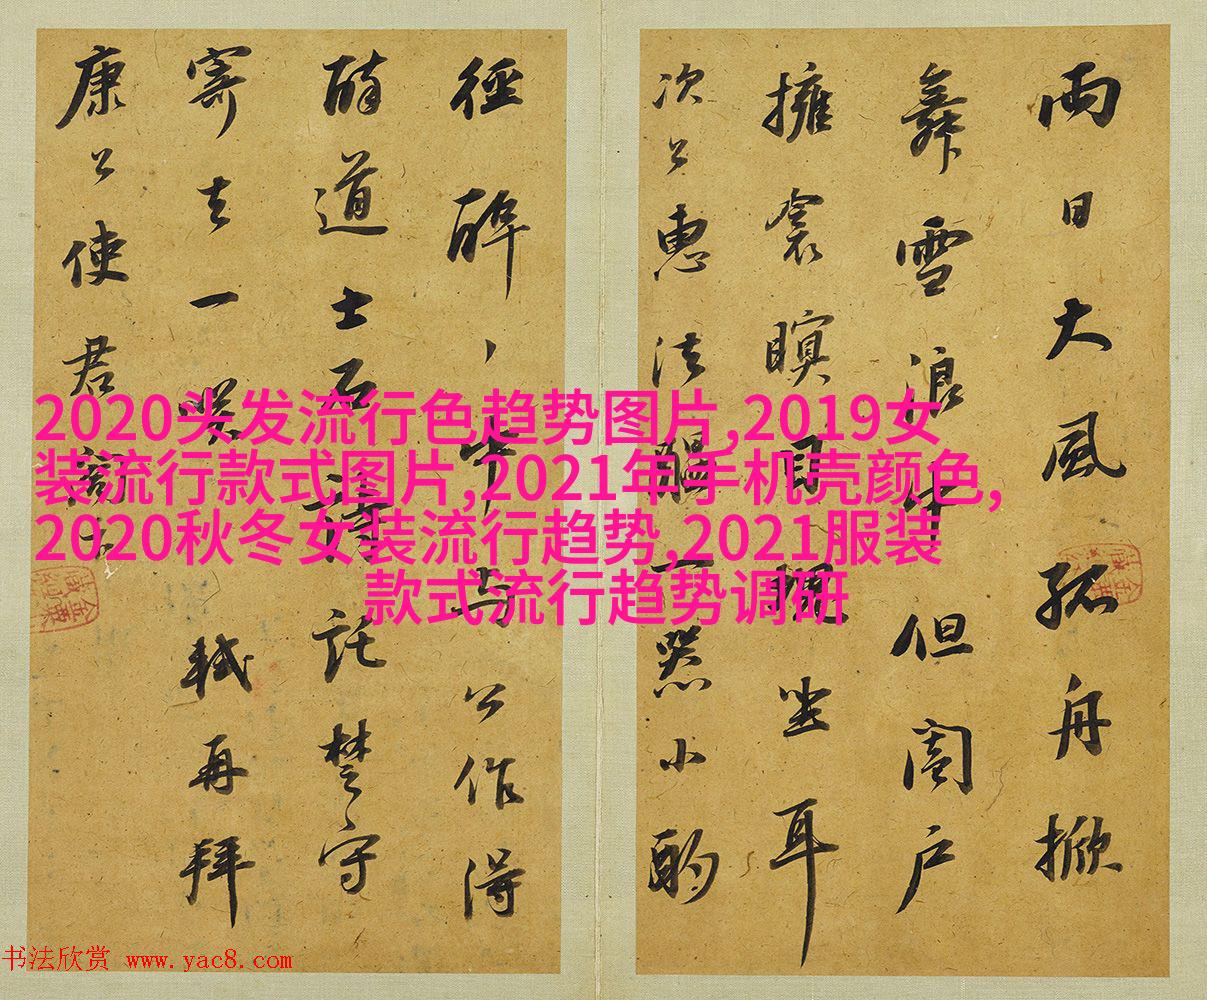 兩日大風孤舟掀
舞雪浪中但闔户
擁衾瞑目塊坐耳
次公惠法醞一器小酌
徑醉、中与公作得
醉道士石詩託楚守
寄去一笑軾再拜
康公使君閣下
2020头发流行色趋势图片,2019女
装流行款式图片,2021年手机壳颜色,
2020秋冬女装流行趋势,2021服装
款式流行趋势调研
书法欣赏 www.yac8.com